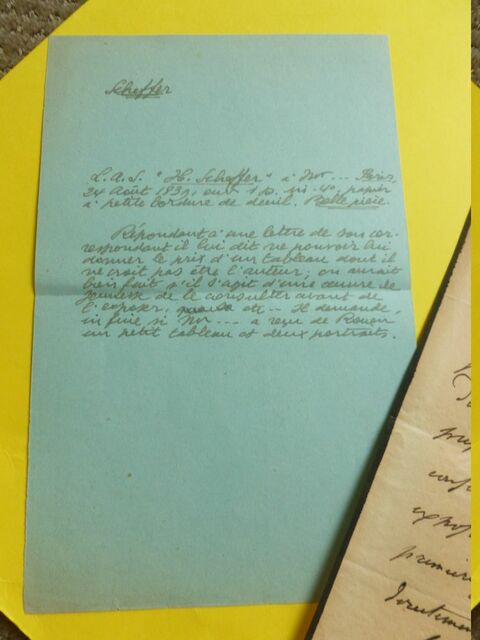 Scheffer
L.A.S. "H. Scheffer" à Mr... Paris,
24 Août 1839, sur 1 p. in-4°, papier
à petite bordure de deuil. Belle pièce.
Répondant à une lettre de son cor-
respondant il lui dit ne pouvoir lui
donner le prix d'un tableau dont il
ne croit pas être l'auteur; on aurait
bien fait s'il s'agit d'une œuvre de
jeunesse de le consulter avant de
l'exposer, etc... Il demande,
in fine si Mr... a reçu de Rouen
un petit tableau et deux portraits.
première